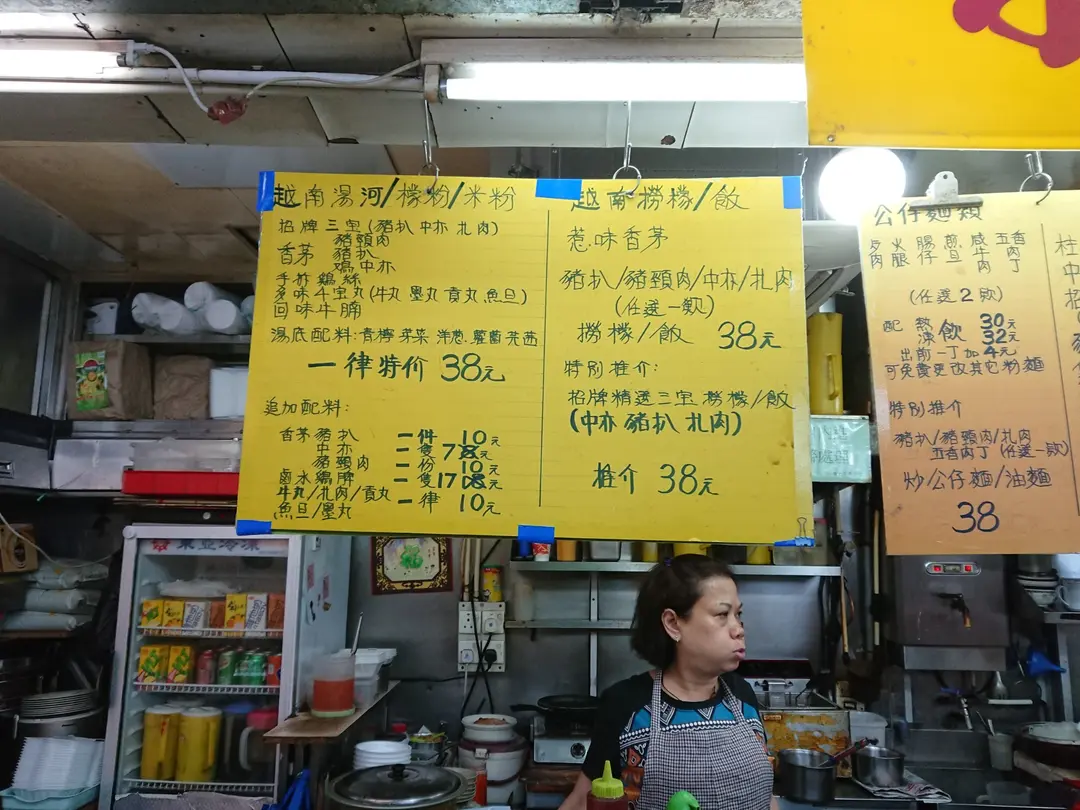 越南湯河/檬粉/米粉
招牌三宝(豬扒中亦扎肉)
豬頸肉
香茅 豬扒
鴻中亦
手撕鷄絲
多味牛宝丸(牛丸墨丸貢丸魚旦)
回味牛腩
湯底配料:青檸芽菜洋葱蘿蔔芫茜
一律特价 38元
追加配料:
香茅豬扒 一件 10元
中亦 一隻 7元
豬頸肉 一份 10元
鹵水鷄脾 一隻 17元
牛丸/扎肉/貢丸
魚旦/墨丸 一律 10元
越南撈檬/飯
惹味香茅
豬扒/豬頸肉/中亦/扎肉
(任選一款)
撈檬/飯 38元
特別推介:
招牌精選三宝撈檬/飯
(中亦豬扒扎肉)
推介 38元
公仔麵類
火腿 腸仔 煎旦 咸牛肉 五香肉丁
(任選2款)
配 熱飲 30元
凍飲 32元
出前一丁加4元
可免費更改其它粉麵
特別推介
豬扒/豬頸肉/扎肉
五香肉丁(任選一款)
炒/公仔麵/油麵
38